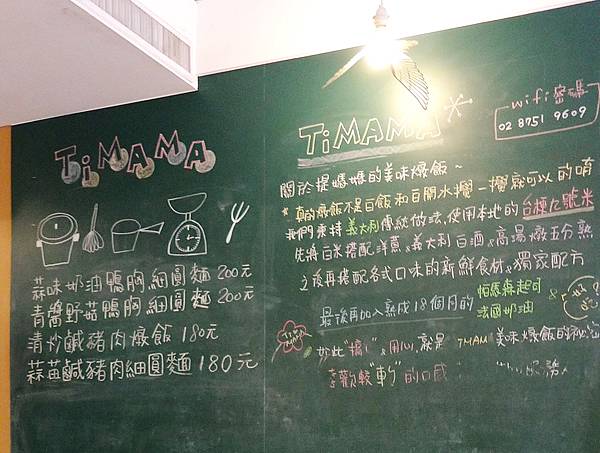 TiMAMA
蒜味奶油鴨胸細圓麵 200元
青醬野菇鴨胸細圓麵 200元
清炒鹹豬肉燉飯 180元
蒜苗鹹豬肉細圓麵 180元
wifi密碼
02 8751 9609
TiMAMA
關於提媽媽的美味燉飯~
★ 真的燉飯不是白飯和白開水攪一攪就可以的唷
我們秉持義大利傳統做法,使用本地的台梗九號米
先將白米搭配洋蔥&義大利白酒&高湯燉五分熟
之後再搭配各式口味的新鮮食材&獨家配方
最後再加入熟成18個月的
帕馬森起司
法國奶油 &
如此"搞"&用心,就是 TiMAMA 美味燉飯的秘密
的口感